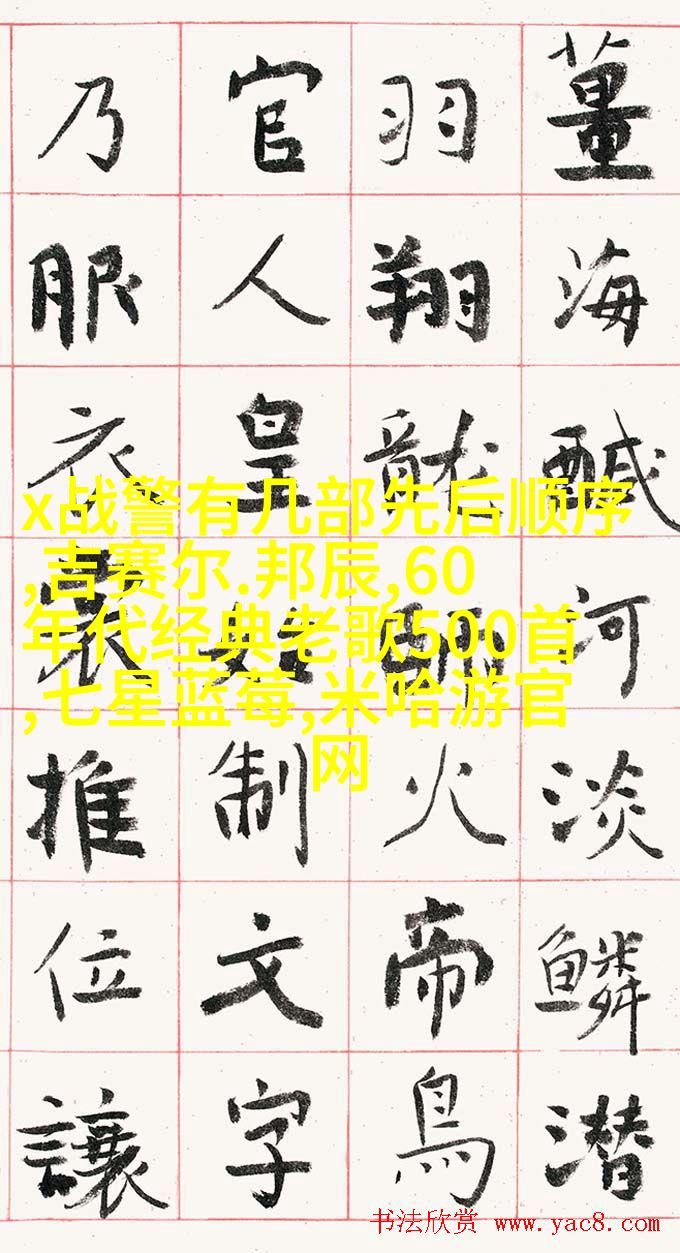 薑海鹹河淡鱗潛
羽翔龍師火帝鳥
官人皇始制文字
乃服衣裳推位讓
x战警有几部先后顺序
,吉赛尔.邦辰,60
年代经典老歌500首
,七星蓝莓,米哈游官
网
书法欣赏 www.yac8.com